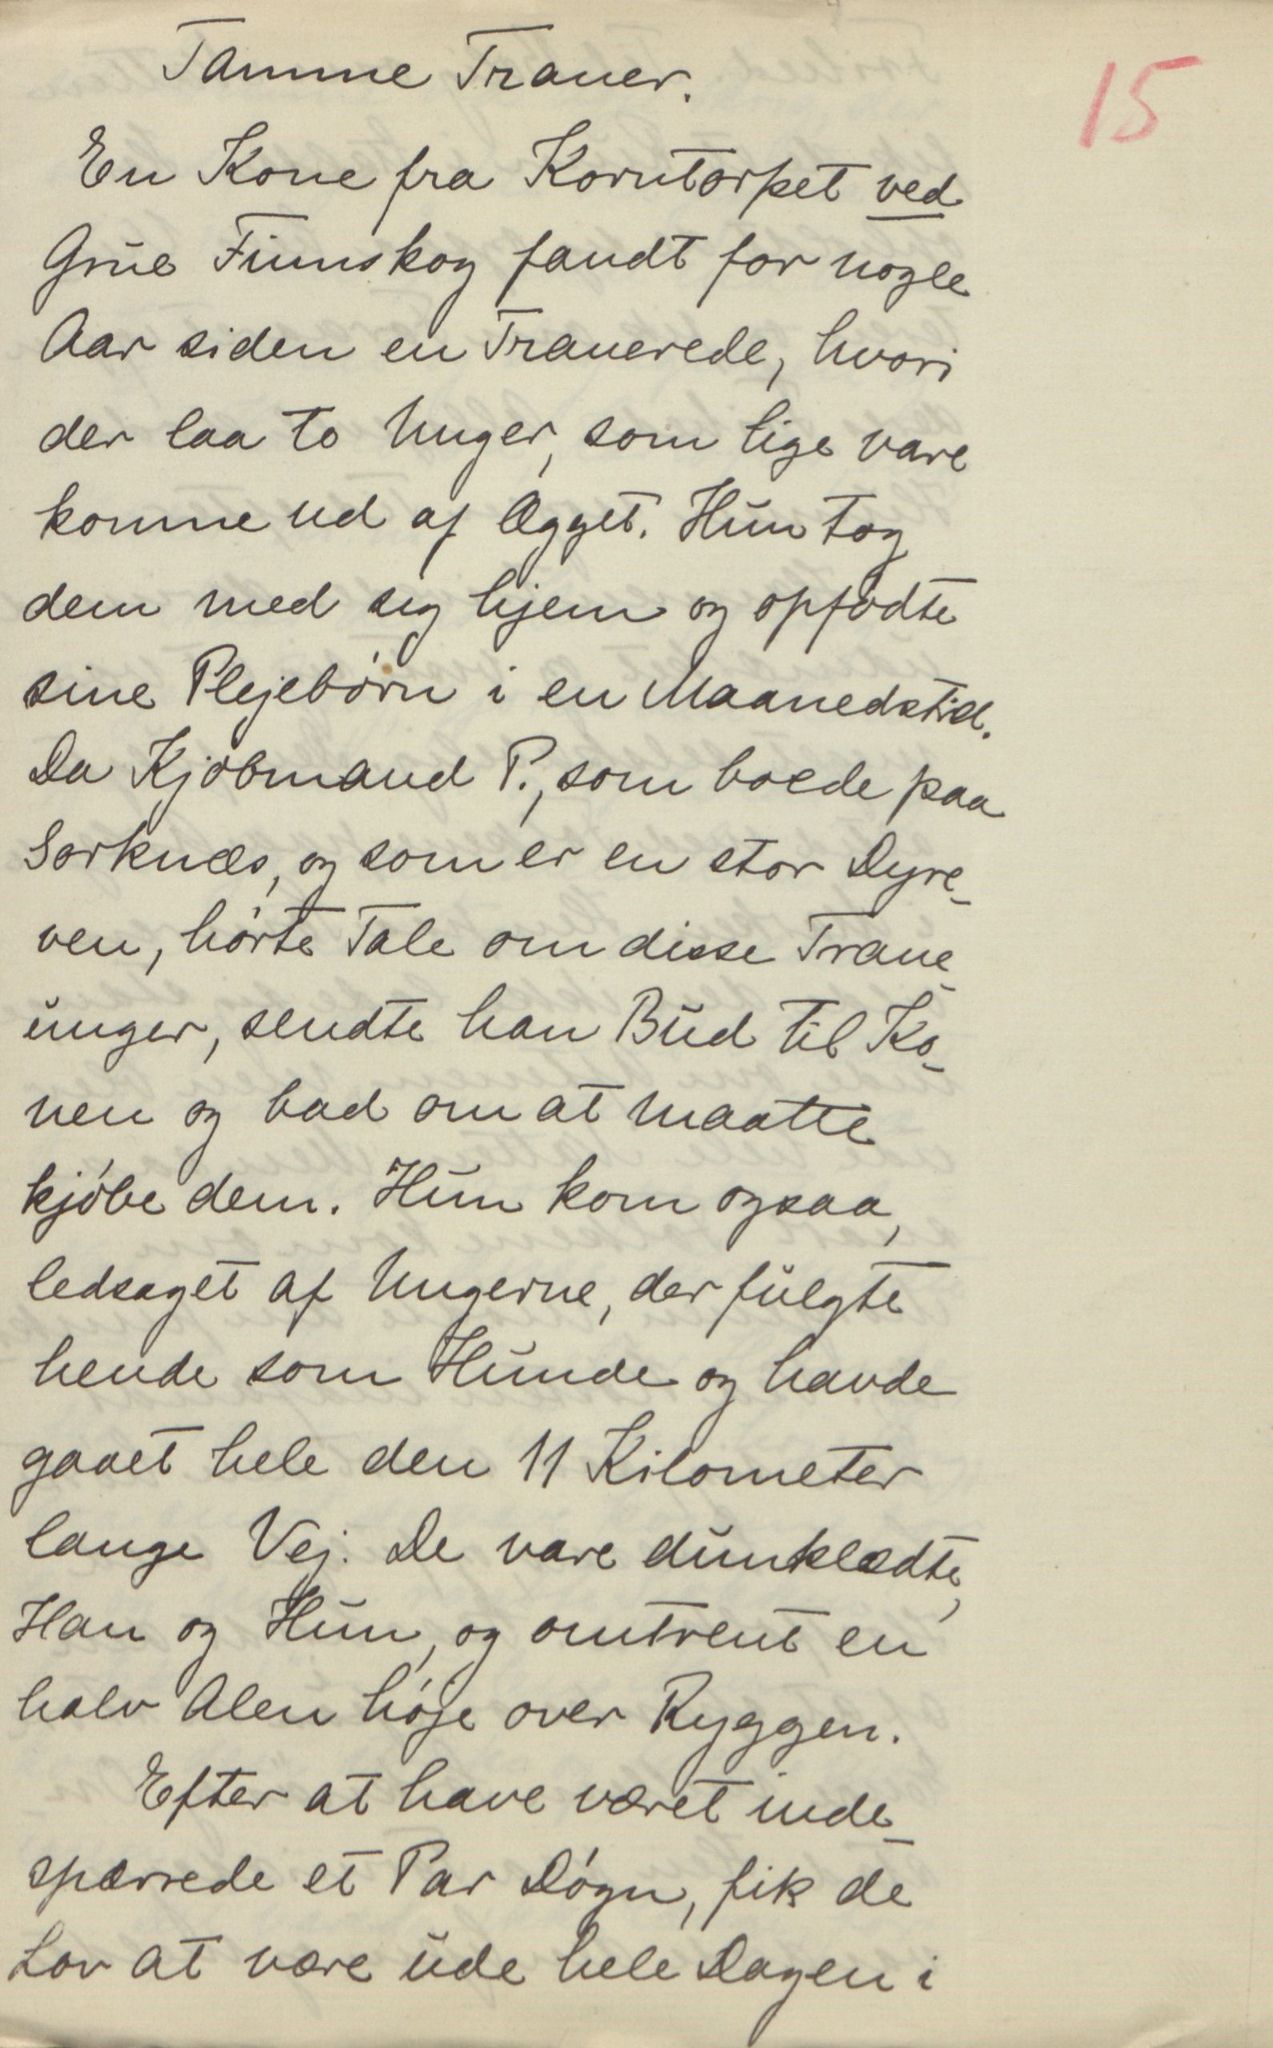 Tamme Traner.
15
En Kone fra Korntorpet ved
Grue Finnskog fandt for nogle
Aar siden en Tranerede, hvori
der laa to Unger, som lige vare
komne ud af Ægget. Hun tog
dem med sig hjem og opfødte
sine Plejebørn i en Maanedstid.
Da Kjøbmand P., som boede paa
Sorknæs, og som er en stor Dyre-
ven, hørte Tale om disse Trane-
unger, sendte han Bud til Ko-
nen og bad om at maatte
kjøbe dem. Hun kom ogsaa,
ledsaget af Ungerne, der fulgte
hende som Hunde og havde
gaaet hele den 11 Kilometer
lange Vej. De vare dunklædte,
Han og Hun, og omtrent en
halv Alen høje over Ryggen.
Efter at have været inde-
spærrede et Par Døgn, fik de
Lov at være ude hele Dagen i